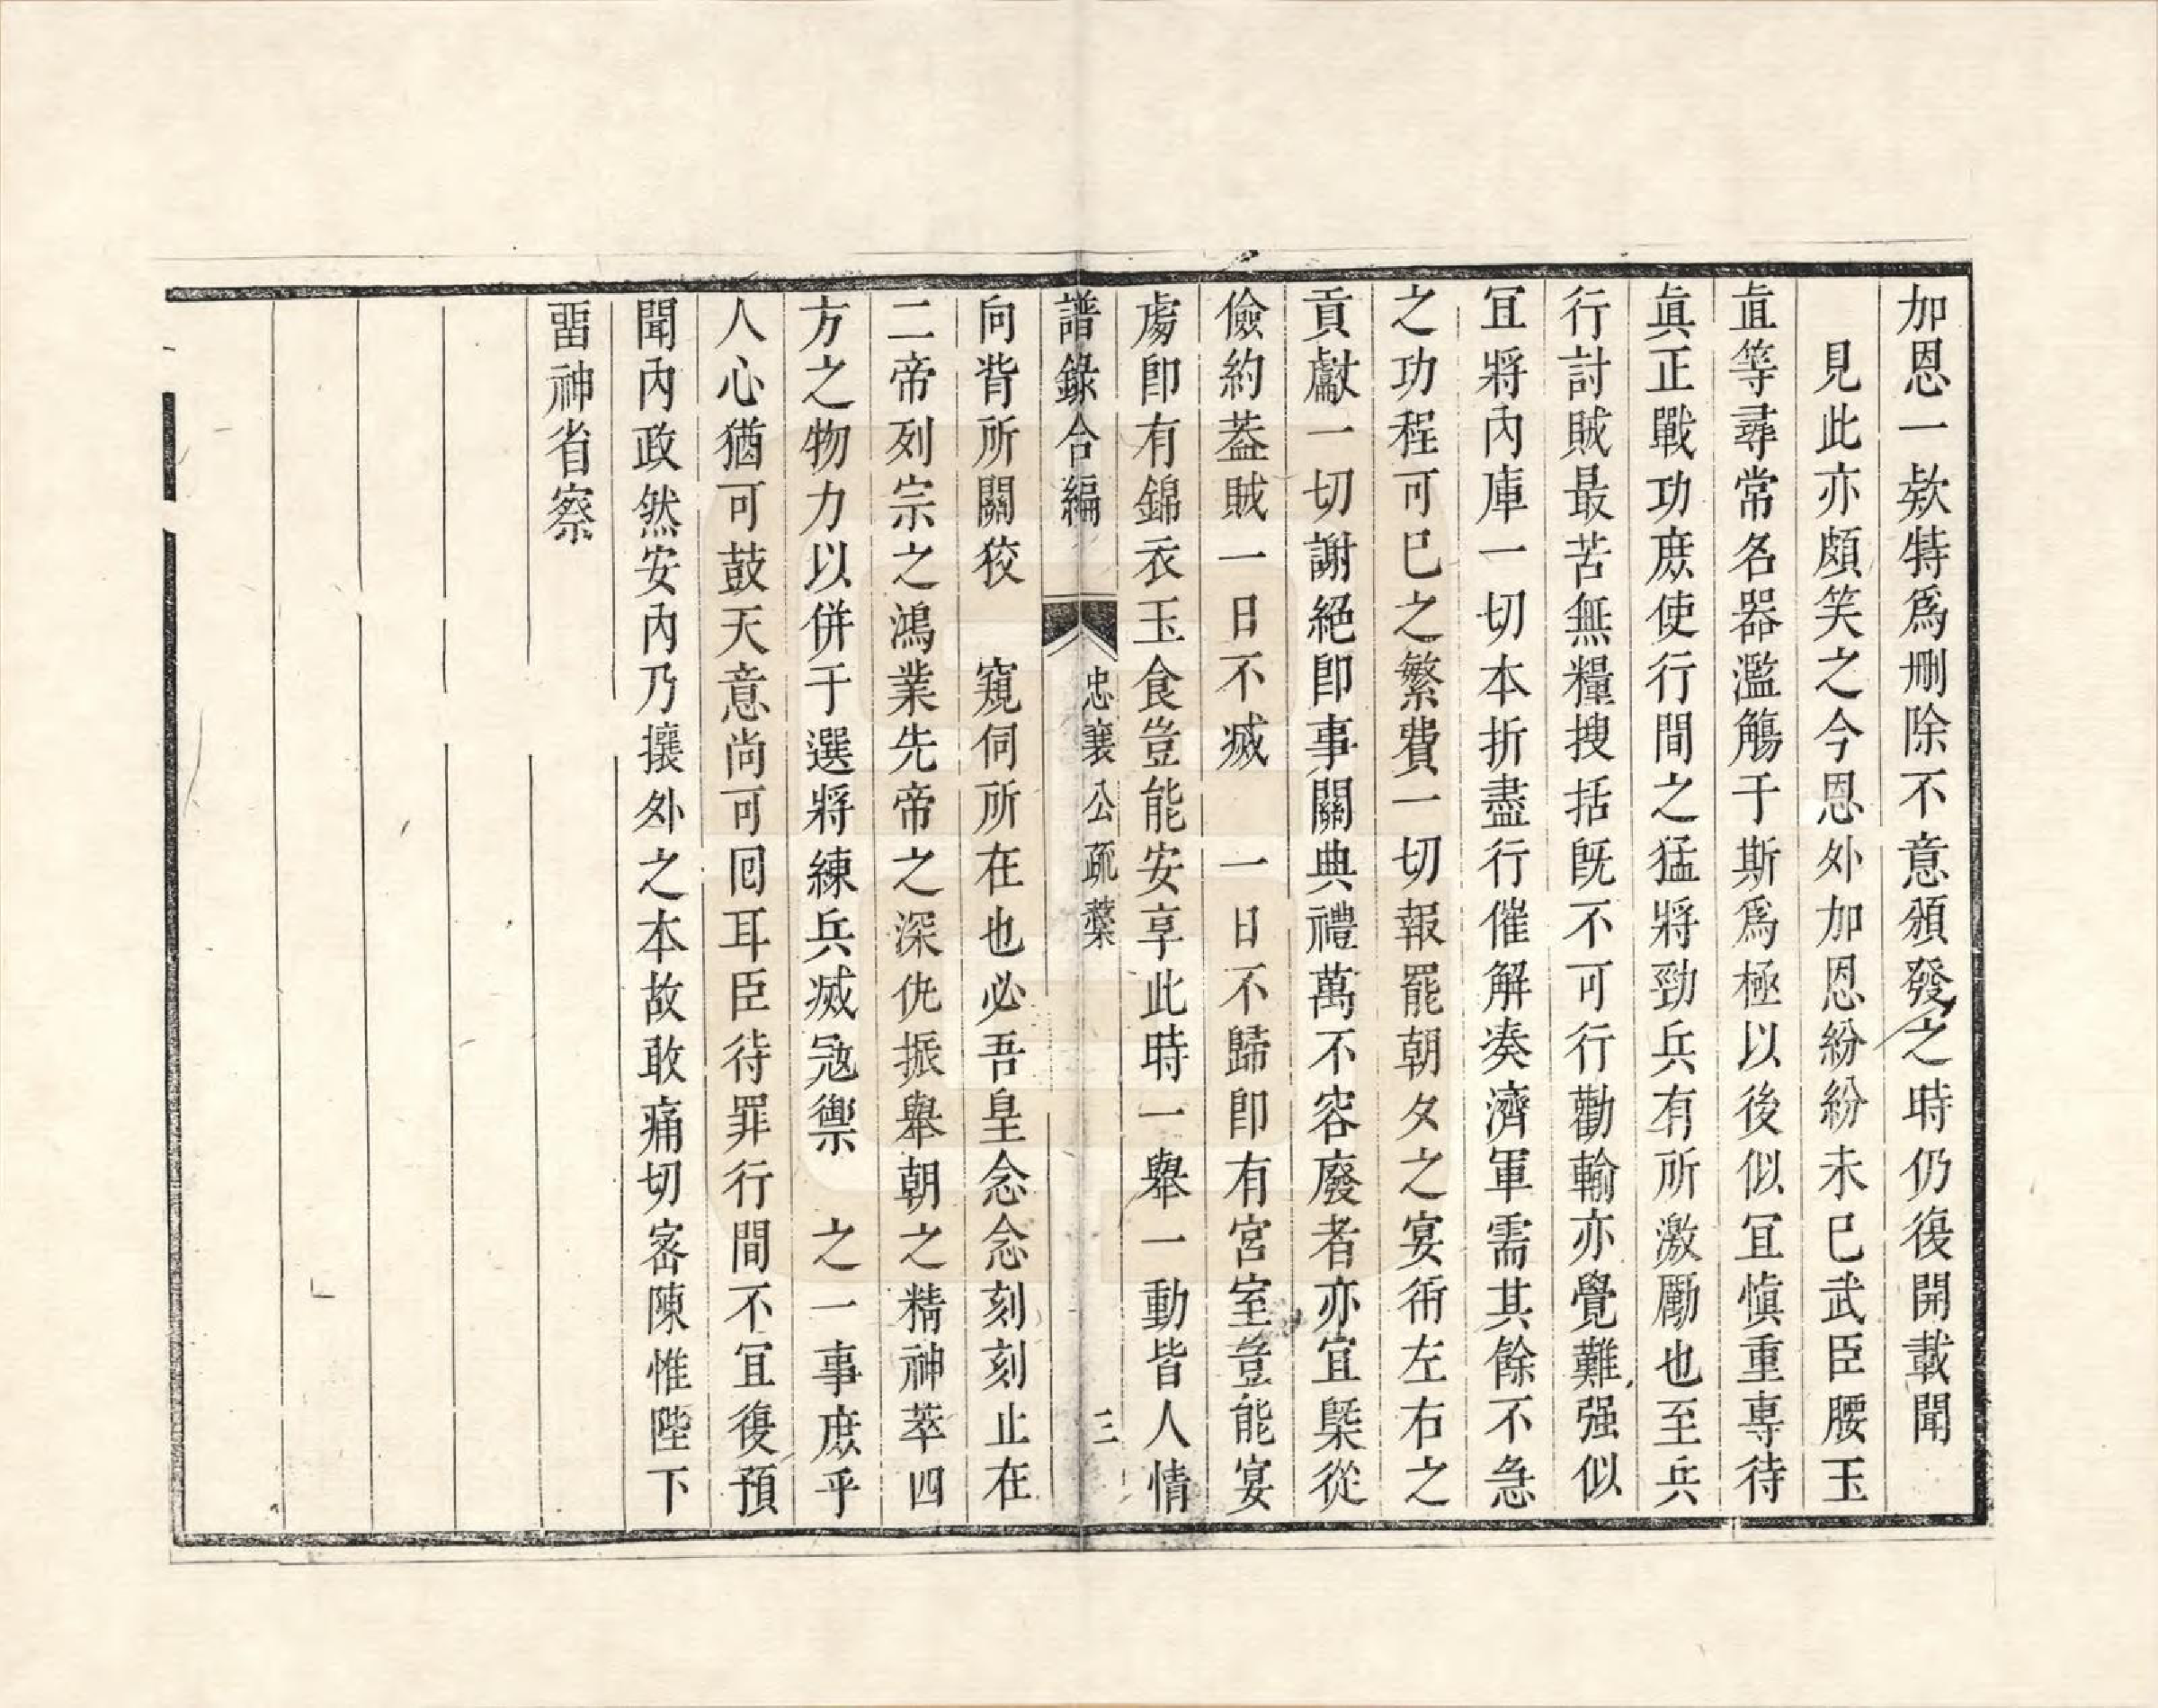 加恩一欵特爲刪除不意頒發之時仍復開載聞
見此亦頗笑之今恩外加恩紛紛未已武臣腰玉
直等尋常名器濫觴于斯爲極以後似宜愼重專待
眞正戰功庶使行間之猛將勁兵有所激勵也至兵
行討賊最苦無糧搜括旣不可行勸輸亦覺難强似
宜將內庫一切本折盡行催解凑濟軍需其餘不急
之功程可已之繁費一切報罷朝夕之宴衎左右之
貢獻一切謝絕卽事關典禮萬不容廢者亦宜槩從
儉約葢賊一日不滅　一日不歸卽有宮室豈能宴
處卽有錦衣玉食豈能安享此時一舉一動皆人情
譜錄合編　忠襄公疏藁　三
向背所關狡　窺伺所在也必吾皇念念刻刻止在
二帝列宗之鴻業先帝之深仇振舉朝之精神萃四
方之物力以併于選將練兵滅寇禦　之一事庶乎
人心猶可鼓天意尚可囘耳臣待罪行間不宜復預
聞內政然安內乃攘外之本故敢痛切密陳惟陛下
畱神省察